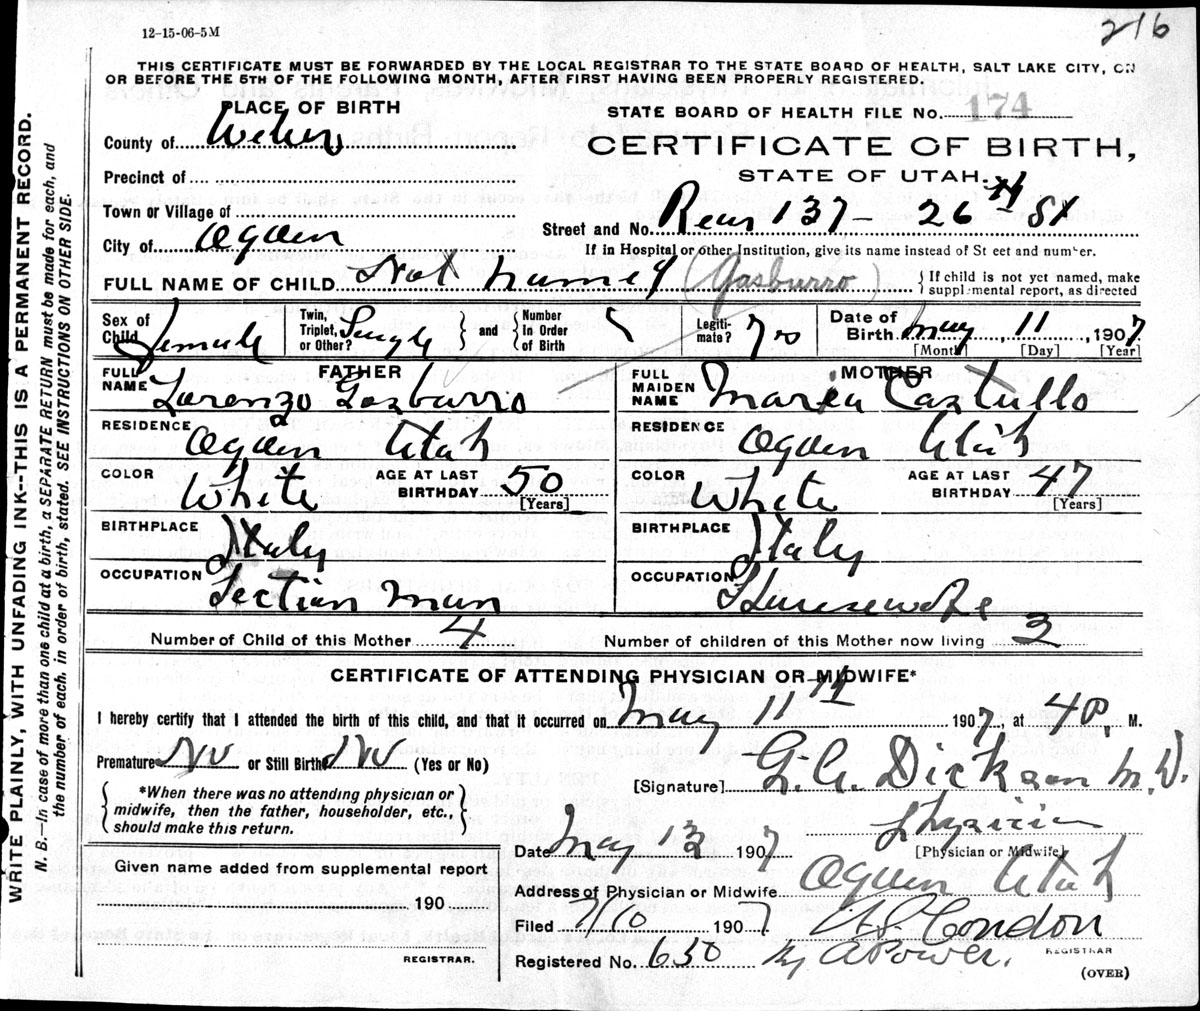 216
12-15-06-5M
THIS CERTIFICATE MUST BE FORWARDED BY THE LOCAL REGISTRAR TO THE STATE BOARD OF HEALTH, SALT LAKE CITY, ON
OR BEFORE THE 5TH OF THE FOLLOWING MONTH, AFTER FIRST HAVING BEEN PROPERLY REGISTERED.
WRITE PLAINLY, WITH UNFADING INK--THIS IS A PERMANENT RECORD.
N. B.—In case of more than one child at a birth, a SEPARATE RETURN must be made for each, and
the number of each, in order of birth, stated. SEE INSTRUCTIONS ON OTHER SIDE.
PLACE OF BIRTH
STATE BOARD OF HEALTH FILE No. 174
County of Weber
CERTIFICATE OF BIRTH,
STATE OF UTAH.
Precinct of
Town or Village of
Street and No. Rear 137 - 26th St
City of Ogden
If in Hospital or other Institution, give its name instead of Street and number.
FULL NAME OF CHILD Not named (Gasburro) { If child is not yet named, make
supplemental report, as directed
Sex of Child Female
Twin, Triplet, or Other? Single } and { Number In Order of Birth
Legitimate?
Date of Birth May 11, 1907
[Month] [Day] [Year]
FATHER
FULL NAME Lorenzo Gasburro
MOTHER
FULL MAIDEN NAME Maria Castullo
RESIDENCE Ogden Utah
RESIDENCE Ogden Utah
COLOR White AGE AT LAST BIRTHDAY 50 [Years]
COLOR White AGE AT LAST BIRTHDAY 47 [Years]
BIRTHPLACE Italy
BIRTHPLACE Italy
OCCUPATION Section Man
OCCUPATION Housewife
Number of Child of this Mother 4 Number of children of this Mother now living 3
CERTIFICATE OF ATTENDING PHYSICIAN OR MIDWIFE*
I hereby certify that I attended the birth of this child, and that it occurred on May 11th 1907, at 4 P M.
Premature No or Still Birth No (Yes or No)
[Signature] G. A. Dickson M.D.
{ *When there was no attending physician or
midwife, then the father, householder, etc.,
should make this return. }
Physician
[Physician or Midwife]
Date May 13 1907
Given name added from supplemental report
190
REGISTRAR.
Address of Physician or Midwife Ogden Utah
Filed 7/10 1907 Condon
REGISTRAR
Registered No. 630 By A Power.
(OVER)